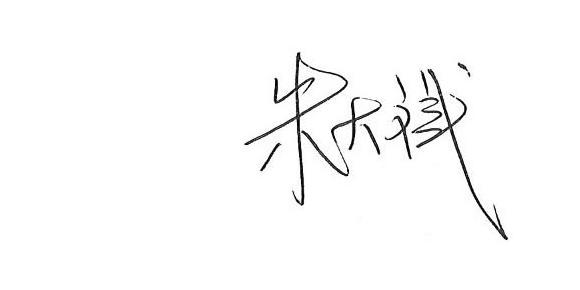 朱大斌